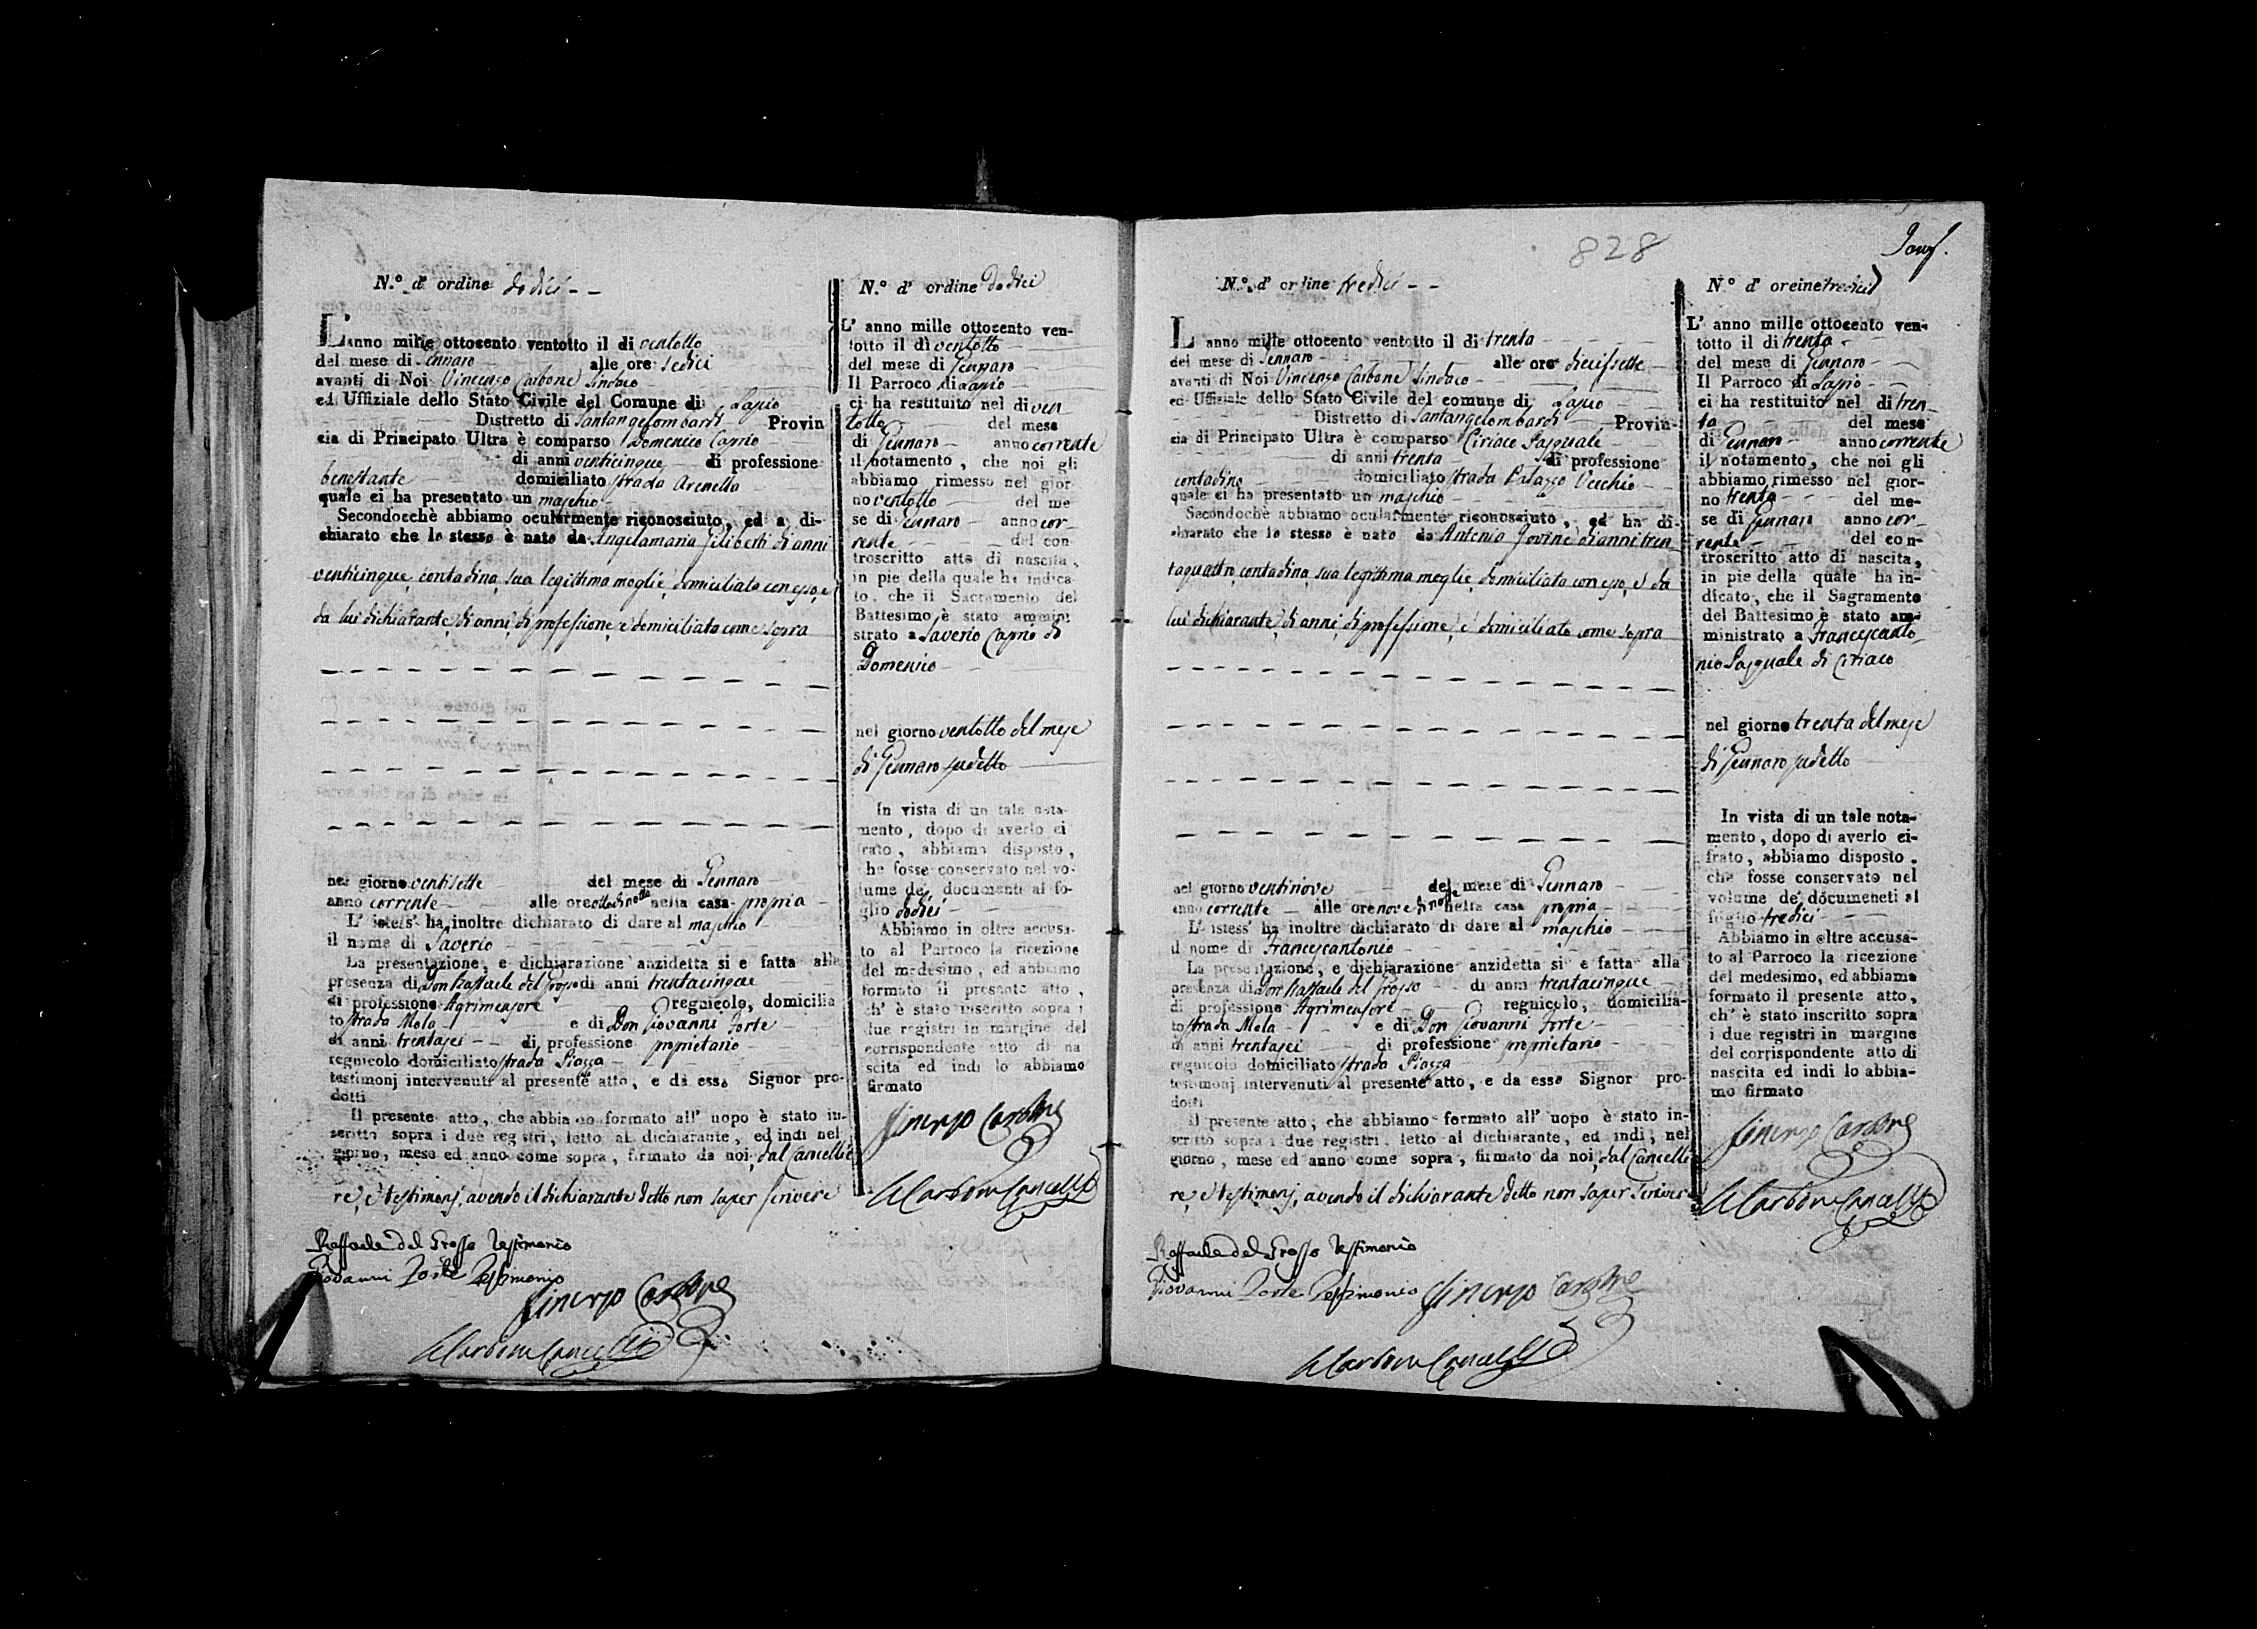 N.º d' ordine dodici
L'anno mille ottocento ventotto il di ventotto
del mese di Gennaro alle ore sedici
avanti di Noi Vincenzo Carbone Sindaco
ed Uffiziale dello Stato Civile del Comune di Lapio
Distretto di Santangelombardi Provin
cia di Principato Ultra è comparso Domenico Caprio
di anni venticinque di professione
benestante domiciliato strada Arenella
quale ci ha presentato un maschio
Secondocchè abbiamo ocularmente riconosciuto, ed a di-
chiarato che lo stesso è nato da Angelamaria Filiberti di anni
venticinque, contadina, sua legittima moglie, domiciliata con esso, e
da lui dichiarante, di anni, di professione, e domiciliato come sopra
nel giorno ventisette del mese di Gennaro
anno corrente alle ore otto di notte nella casa propria
L' istess' ha inoltre dichiarato di dare al maschio
il nome di Saverio
La presentazione, e dichiarazione anzidetta si e fatta alla
presenza di Don Raffaele del Grosso di anni trentacinque
di professione Agrimensore regnicolo, domicilia
to strada Mola e di Don Giovanni Forte
di anni trentasei di professione proprietario
regnicolo domiciliato strada Piazza
testimonj intervenuti al presente atto, e da esso Signor pro-
dotti
Il presente atto, che abbiamo formato all' uopo è stato in-
scritto sopra i due registri, letto al dichiarante, ed indi nel
giorno, mese ed anno come sopra, firmato da noi, dal Cancellie
re, e testimonj, avendo il dichiarante detto non saper scrivere
Raffaele del Grosso Testimonio
Giovanni Forte Testimonio
Vincenzo Carbone
Carbone Cancelle
N.º d' ordine Dodici
L' anno mille ottocento ven-
totto il di ventotto
del mese di Gennaro
Il Parroco di Lapio
ci ha restituito nel di ven
totto del mese
di Gennaro anno corrente
il notamento, che noi gli
abbiamo rimesso nel gior
no ventotto del me
se di Gennaro anno cor-
rente del con
troscritto atto di nascita,
in pie della quale ha indica
to, che il Sacramento del
Battesimo è stato ammini
strato a Saverio Caprio di
Domenico
nel giorno ventotto del mese
di Gennaro sudetto
In vista di un tale nota-
mento, dopo di averlo ci
frato, abbiamo disposto,
che fosse conservato nel vo-
lume de' documenti al fo-
glio dodici
Abbiamo in oltre accusa-
to al Parroco la ricezione
del medesimo, ed abbiamo
formato il presente atto,
ch' è stato inscritto sopra i
due registri in margine del
corrispondente atto di na
scita ed indi lo abbiamo
firmato
Vincenzo Carbone
Carbone Cancelle
828
N.º d' ordine tredici
L'anno mille ottocento ventotto il di trenta
del mese di Gennaro alle ore diecissette
avanti di Noi Vincenzo Carbone Sindaco
ed Uffiziale dello Stato Civile del comune di Lapio
Distretto di Santangelombardi Provin-
cia di Principato Ultra è comparso Ciriaco Pasquale
di anni trenta di professione
contadino domiciliato strada Palazzo Vecchio
quale ci ha presentato un maschio
Secondochè abbiamo ocularmente riconosciuto, ed ha di-
chiarato che lo stesso è nato da Antonia Jovine di anni tren
taquattro, contadina, sua legittima moglie, domiciliata con esso, e da
lui dichiarante, di anni, di professione, e domiciliato come sopra
nel giorno ventinove del mese di Gennaro
anno corrente alle ore nove di notte nella casa propria
L' istess' ha inoltre dichiarato di dare al maschio
il nome di Francescantonio
La presentazione, e dichiarazione anzidetta si e fatta alla
presenza di Don Raffaele del Grosso di anni trentacinque
di professione Agrimensore regnicolo, domicilia-
to strada Mola e di Don Giovanni Forte
di anni trentasei di professione proprietario
regnicolo domiciliato strada Piazza
testimonj intervenuti al presente atto, e da esso Signor pro-
dotti
Il presente atto, che abbiamo formato all' uopo è stato in-
scritto sopra i due registri, letto al dichiarante, ed indi, nel
giorno, mese ed anno come sopra, firmato da noi, dal Cancellie
re, e testimonj, avendo il dichiarante detto non saper scrivere
Raffaele del Grosso Testimonio
Giovanni Forte Testimonio Vincenzo Carbone
Carbone Cancelle
N.º d' oreine tredici
L' anno mille ottocento ven-
totto il di trenta
del mese di Gennaro
Il Parroco di Lapio
ci ha restituito nel di tren
ta del mese
di Gennaro anno corrente
il notamento, che noi gli
abbiamo rimesso nel gior-
no trenta del me-
se di Gennaro anno cor-
rente del con-
troscritto atto di nascita,
in pie della quale ha in-
dicato, che il Sagramento
del Battesimo è stato am-
ministrato a Francescanto-
nio Pasquale di Ciriaco
nel giorno trenta del mese
di Gennaro sudetto
In vista di un tale nota-
mento, dopo di averlo ci-
frato, abbiamo disposto,
che fosse conservato nel
volume de' documeneti al
foglio tredici
Abbiamo in oltre accusa-
to al Parroco la ricezione
del medesimo, ed abbiamo
formato il presente atto,
ch' è stato inscritto sopra
i due registri in margine
del corrispondente atto di
nascita ed indi lo abbia-
mo firmato
Vincenzo Carbone
Carbone Cancelle